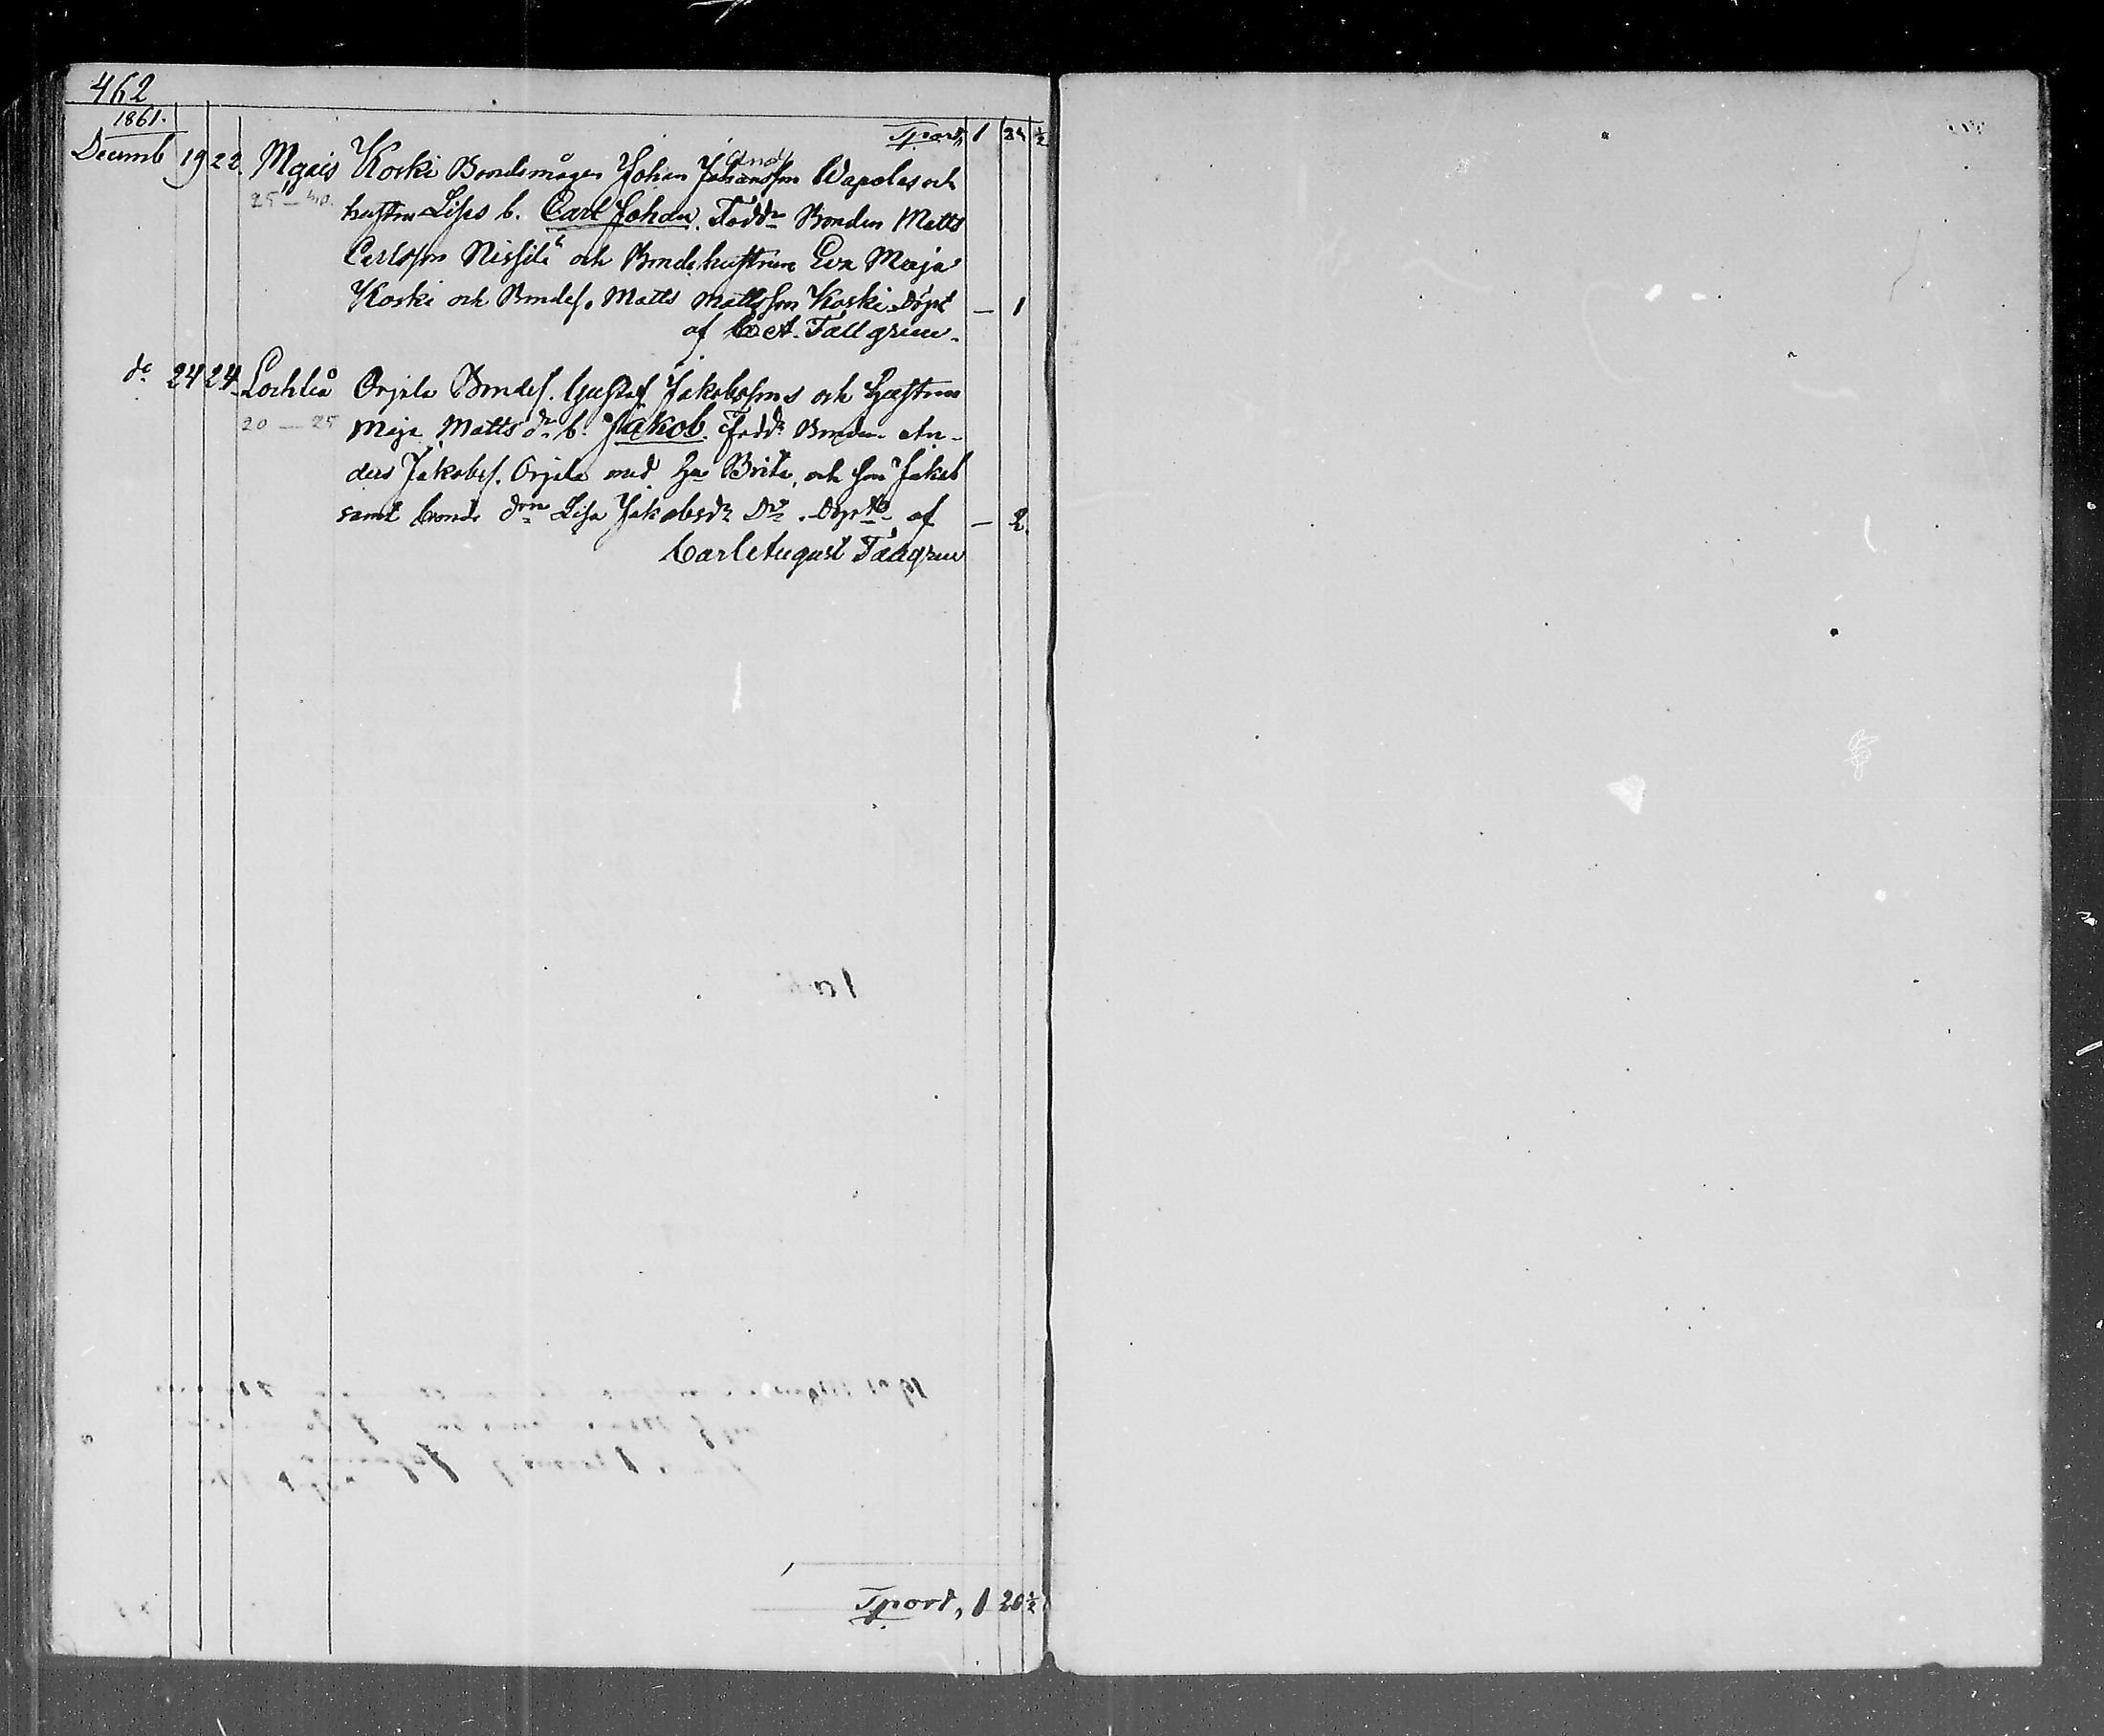 462
1861.
Tport, 1 24 ½
Decemb 19 22. Mgais Koski Bondemågen Johan Johansson Wapolas och
25 — hustru Lisas b. Carl Johan. Fadd: Bonden Matts
Carlsson Nissilä och Bondehustrun Eva Maja
Koski och Bondes. Matts Mattsson Koski Döpt — 1
af C. A. Tallgren.
do 24 24 Lochteå Orjela Bondes. Gustaf Jakobssons och Hustrun
20 — 25 Maja Matts dr b. Jakob. Fadd: Bonden An-
ders Jakobs. Orjela med Hu Brita, och son Jakob
samt bonde drn Lisa Jakobsdr Do. Döpt af — 2.
Carl August Tallgren
Tport, 1 26 ½